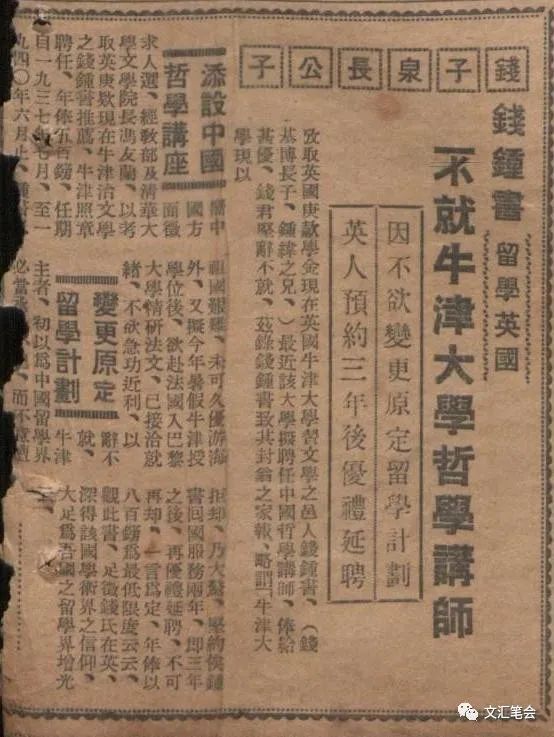 錢子泉長公子
錢鍾書 留學英國
不就牛津大學哲學講師
因不欲變更原定留學計劃
英人預約三年後優禮延聘
攷取英國庚款學金現在英國牛津大學習文學之邑人錢鍾書、(錢
基博長子、鍾緯之兄、)最近該大學擬聘任中國哲學講師、俸給
甚優、錢君堅辭不就、茲錄錢鍾書致其封翁之家報、略謂「牛津大
學現以
添設中國
哲學講座
中
國方
面徵
求人選、經敎部及清華大
學文學院長馮友蘭、以考
取英庚欵現在牛津治文學
之錢鍾書推薦、牛津照章
聘任、年俸五百鎊、任期
自一九三七年七月、至一
九四〇年六月止、鍾書
祖國艱難、未可久優游海
外、又擬今年暑假牛津授
學位後、欲赴法國入巴黎
大學精研法文、已接洽就
緒、不欲急功近利、以
變更原定
留學計劃
辭不
就、
牛津
主者、初以爲中國留學界
必當
拒却、乃大驚、堅約俟鍾
書回國服務兩年、即三年
之後、再優禮延聘、不可
再却、一言爲定、年俸以
八百鎊爲最低限度云云、
觀此書、足徵錢氏在英、
深得該國學術界之信仰、
大足爲吾國之留學界增光
文汇笔会